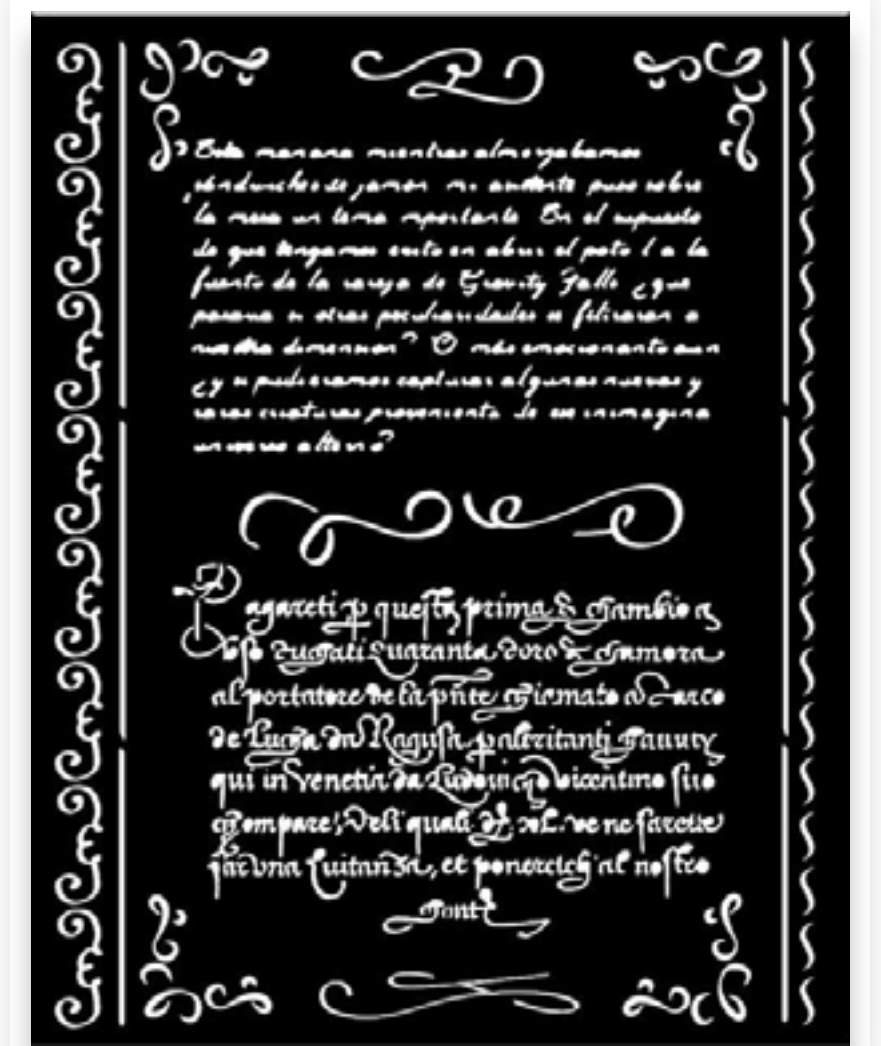 Esta manana mientras almorzabamos
sandwiches de jamon mi puso sobre
la mesa un tema importante En el supuesto
de que tengamos exito en abrir el portal a la
fuente de la rareza de Gravity Falls ¿que
pasaria si otras peculiaridades se filtraran a
nuestra dimension? O más emocionante aun
¿y si pudieramos capturar algunas nuevas y
raras criaturas proveniente de ese inimagina
universo alterno?
agareti p questa prima di Cambio
Ducati Quaranta doro
al portatore de la pnte Marco
de Luca da Ragusa,
qui in Venetia da vicentino suo
Compare, Deli quali ve ne farette
far una Quitanza, et al nostro
Conto